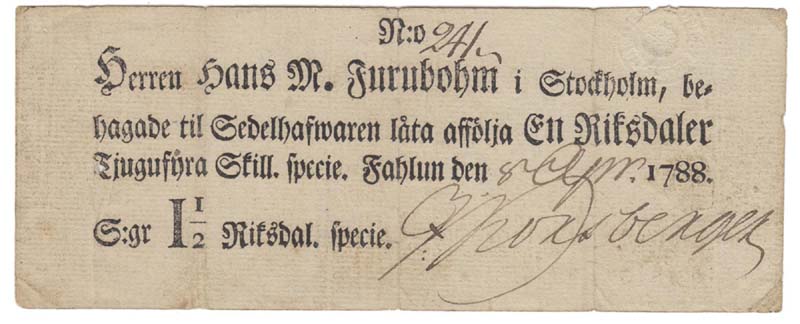 N:o 241.
Herren Hans M. Furubohm i Stockholm, be-
hagade til Sedelhafwaren låta affölja En Riksdaler
Tjugufyra Skill. specie. Fahlun den 8 Apr. 1788.
S:gr 1 1/2 Riksdal. specie.